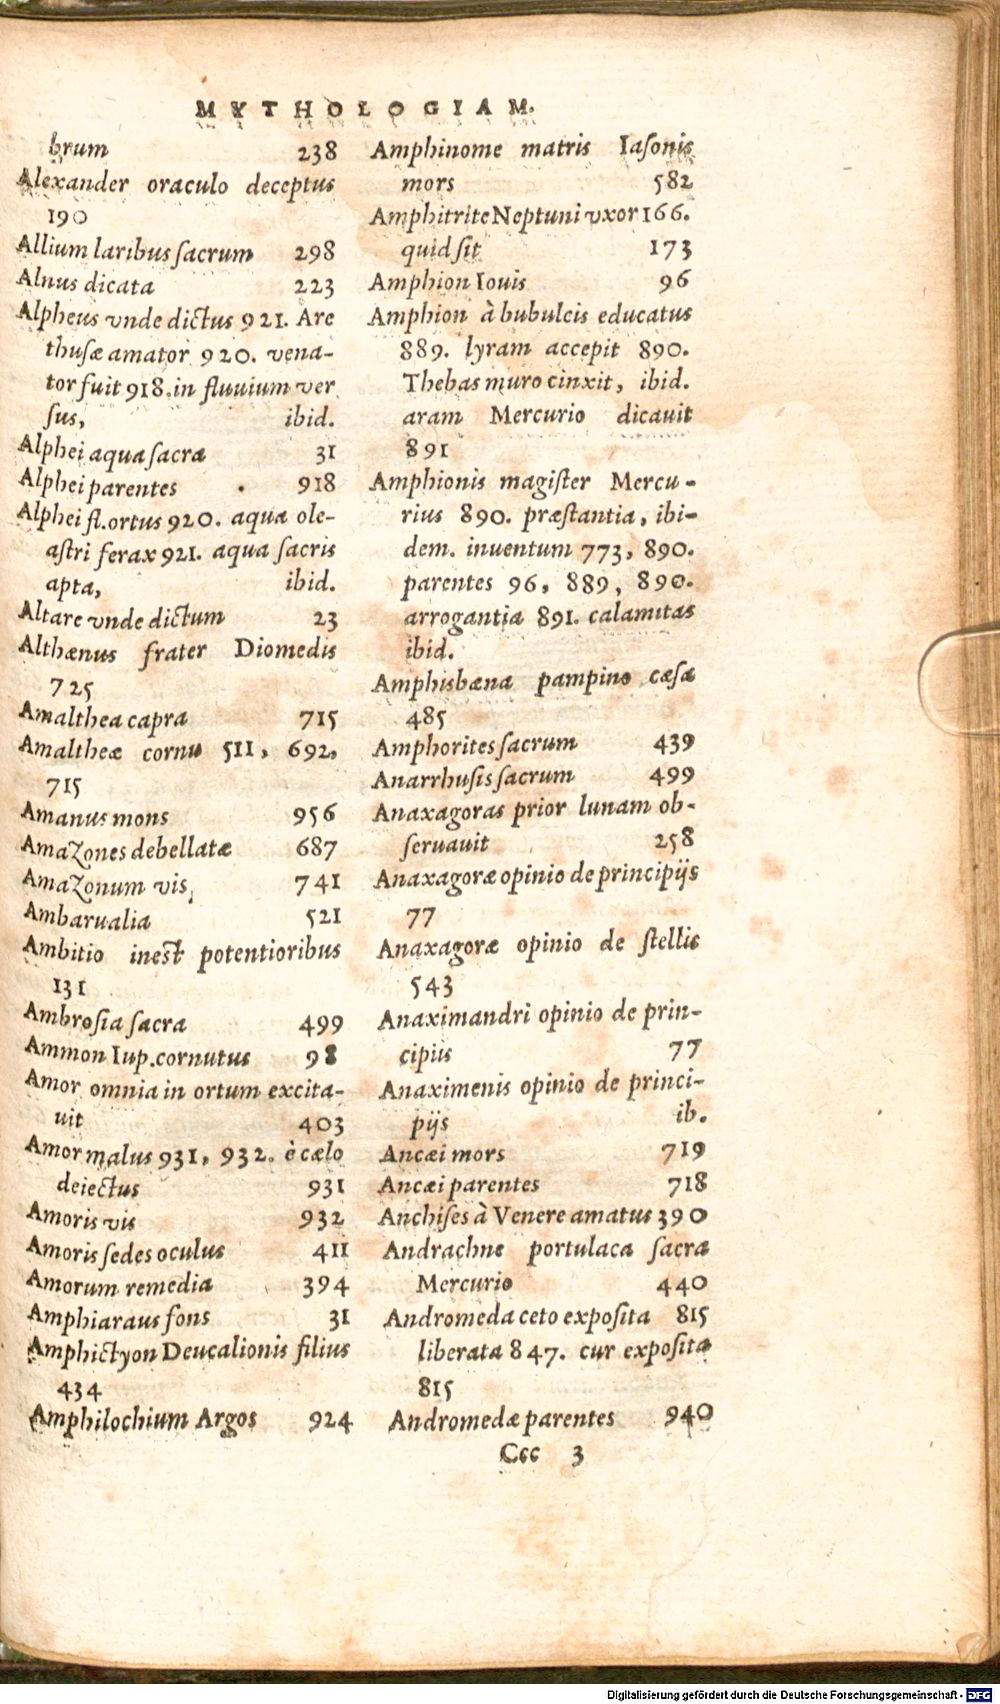 MYTHOLOGIAM.
brum 238
Alexander oraculo deceptus
190
Allium laribus sacrum 298
Alnus dicata 223
Alpheus vnde dictus 921. Are
thusæ amator 920. vena-
tor fuit 918. in fluuium ver
sus, ibid.
Alphei aqua sacra 31
Alphei parentes 918
Alphei fl. ortus 920. aqua ole-
astri ferax 921. aqua sacris
apta, ibid.
Altare vnde dictum 23
Althænus frater Diomedis
725
Amalthea capra 715
Amaltheæ cornu 511, 692,
715
Amanus mons 956
Amazones debellatæ 687
Amazonum vis, 741
Ambarualia 521
Ambitio inest potentioribus
131
Ambrosia sacra 499
Ammon Iup. cornutus 98
Amor omnia in ortum excita-
uit 403
Amor malus 931, 932. è cælo
deiectus 931
Amoris vis 932
Amoris sedes oculus 411
Amorum remedia 394
Amphiaraus fons 31
Amphictyon Deucalionis filius
434
Amphilochium Argos 924
Amphinome matris Iasonis
mors 582
Amphitrite Neptuni vxor 166.
quid sit 173
Amphion Iouis 96
Amphion à bubulcis educatus
889. lyram accepit 890.
Thebas muro cinxit, ibid.
aram Mercurio dicauit
891
Amphionis magister Mercu-
rius 890. præstantia, ibi-
dem. inuentum 773, 890.
parentes 96, 889, 890.
arrogantia 891. calamitas
ibid.
Amphisbæna pampino cæsa
485
Amphorites sacrum 439
Anarrhusis sacrum 499
Anaxagoras prior lunam ob-
seruauit 258
Anaxagoræ opinio de principijs
77
Anaxagoræ opinio de stellis
543
Anaximandri opinio de prin-
cipiis 77
Anaximenis opinio de princi-
pijs ib.
Ancæi mors 719
Ancæi parentes 718
Anchises à Venere amatus 390
Andrachne portulaca sacra
Mercurio 440
Andromeda ceto exposita 815
liberata 847. cur exposita
815
Andromedæ parentes 940
Ccc 3
Digitalisierung gefördert durch die Deutsche Forschungsgemeinschaft - DFG